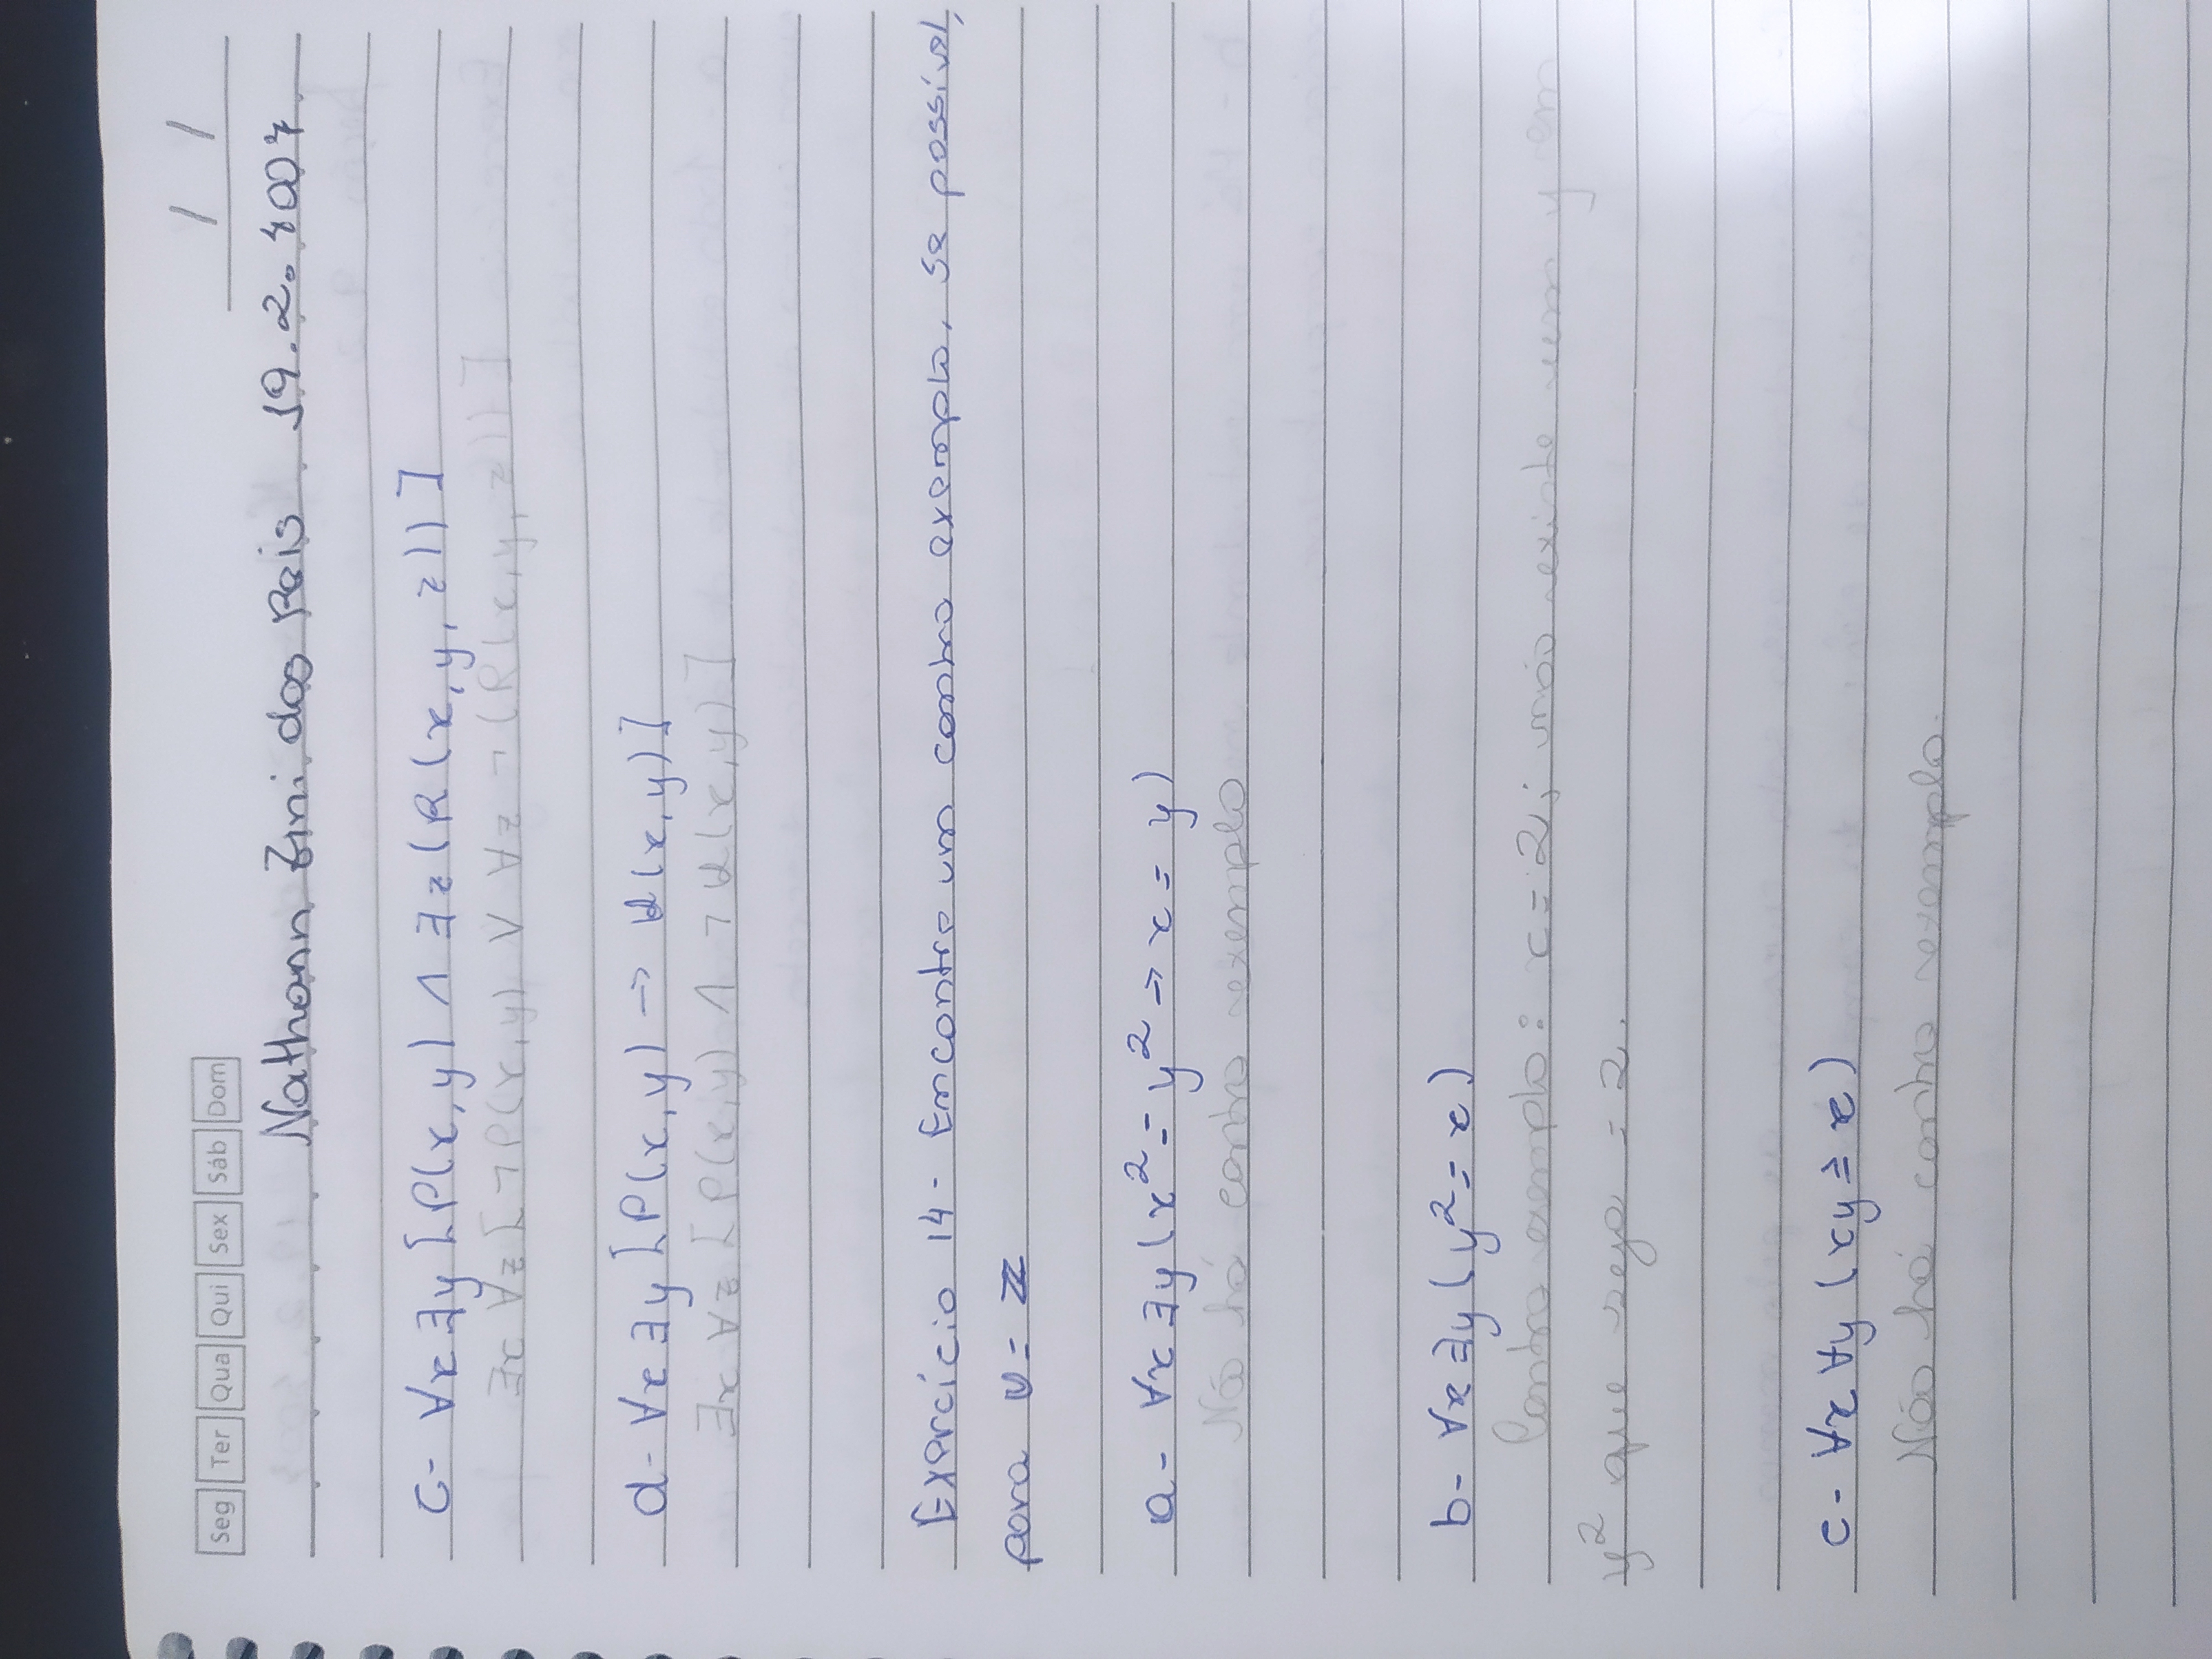 Seg Ter Qua Qui Sex Sáb Dom
/ /
Nathann Zini dos Reis 19.2.4007
c- ∀x ∃y [P(x,y) ∧ ∃z (R(x,y,z))]
∃x ∀z [¬P(x,y) ∨ ∀z ¬(R(x,y,z))]
d- ∀x ∃y [P(x,y) → Q(x,y)]
∃x ∀z [P(x,y) ∧ ¬Q(x,y)]
Exercício 14- Encontre um contra exemplo, se possível,
para U = ℤ
a- ∀x ∃y (x² = y² → x = y)
Não há contra exemplo
b- ∀x ∃y (y² = x)
Contra exemplo: x = 2; não existe um y em
y² que seja = 2.
c- ∀x ∀y (xy ≥ x)
Não há contra exemplo.